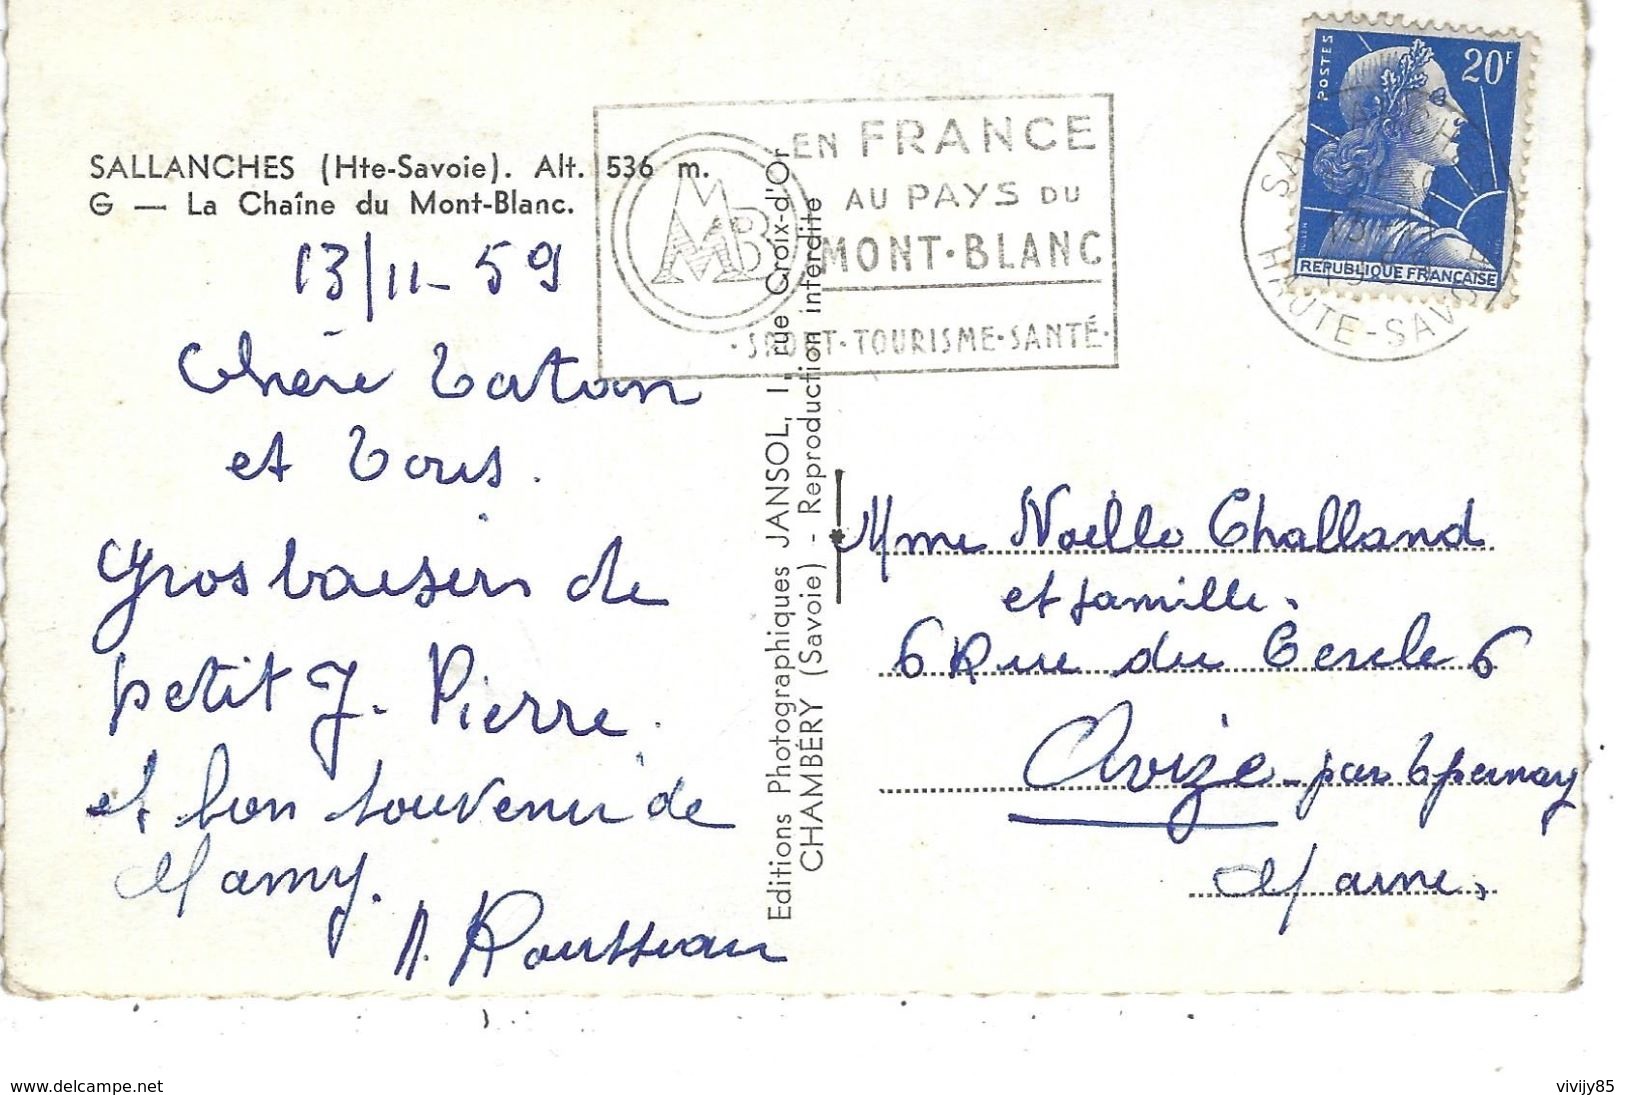 SALLANCHES (Hte-Savoie). Alt. 536 m.
G — La Chaîne du Mont-Blanc.
13/11-59
Chère Taton
et Tous.
Gros baisers de
petit J. Pierre.
et bon souvenir de
Mamy.
A. Rousseau
MB
EN FRANCE
AU PAYS DU
MONT-BLANC
·SPORT·TOURISME·SANTÉ·
Editions Photographiques JANSOL, 1, rue Croix-d'Or
CHAMBÉRY (Savoie) - Reproduction interdite
POSTES
20F
REPUBLIQUE FRANÇAISE
HAUTE-SAVOIE
Mme Noëlle Challand
et famille.
6 Rue du Cercle 6
Avize - par Epernay
Marne.
www.delcampe.net
vivijy85